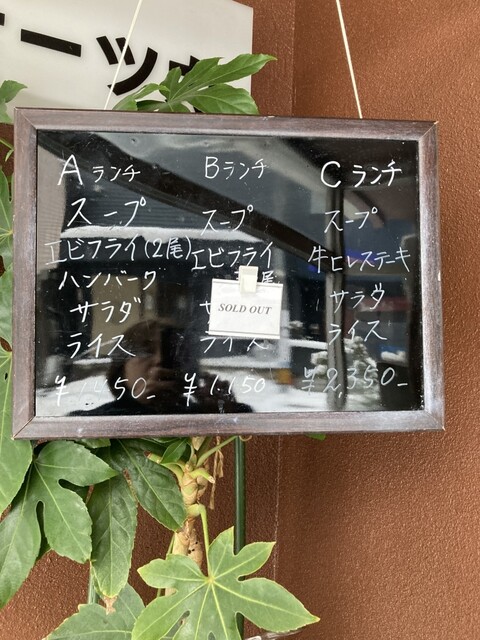 ーツ
Aランチ
スープ
エビフライ(2尾)
ハンバーグ
サラダ
ライス
Bランチ
スープ
エビフライ
尾
SOLD OUT
ライス
¥1,150
Cランチ
スープ
牛ヒレステーキ
サラダ
ライス
¥2,350-